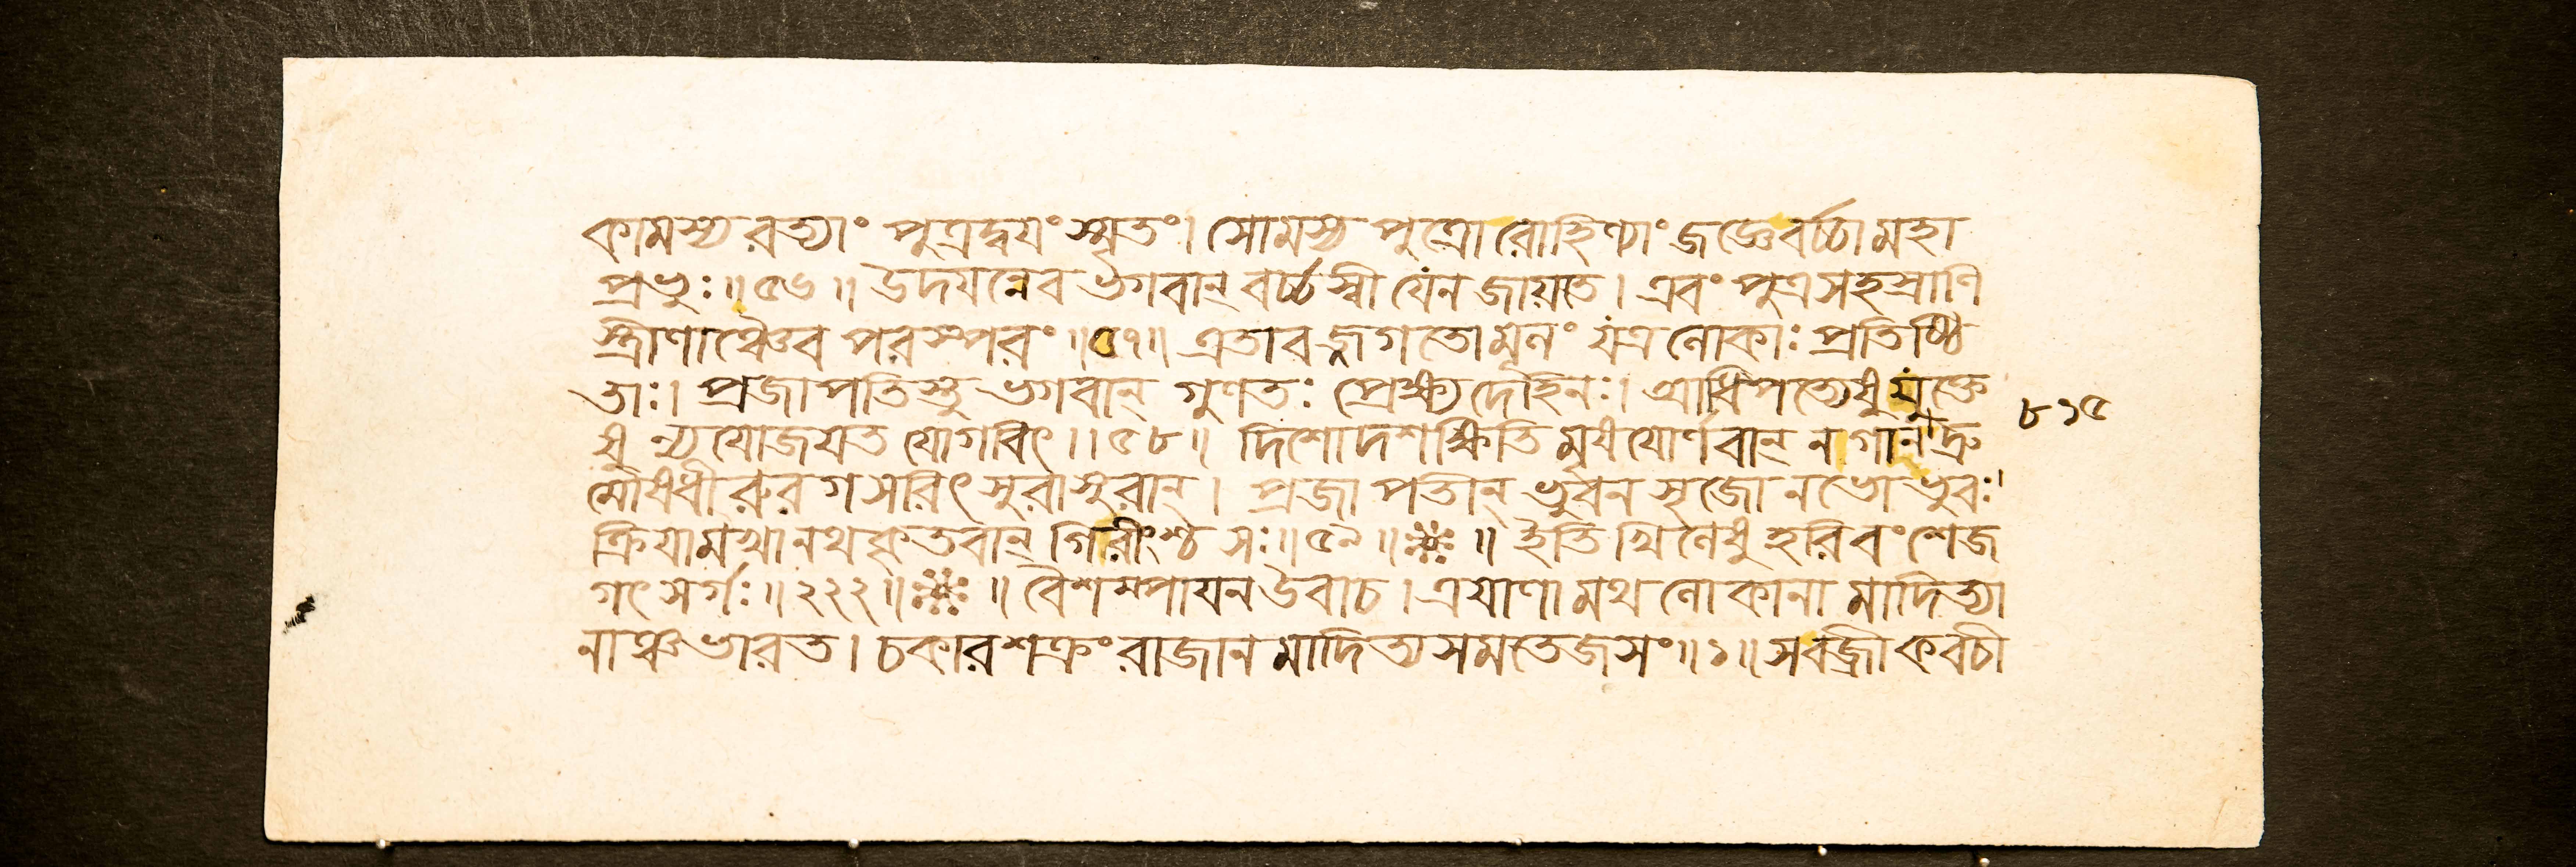 কামস্য রত্যাং পুত্রদ্বয়ং স্মৃতং। সোমস্য পুত্রো রোহিণ্যাং জজ্ঞে বর্চ্চা মহা
প্রভুঃ॥ ৫৬॥ উদয়ন্নেব ভগবান্ বর্চ্চস্বী যেন জায়তে। এবং পুত্রসহস্রাণি
স্ত্রীণাঞ্চৈব পরস্পরং॥ ৫৭॥ এতাবজ্জগতো মূলং যত্র লোকাঃ প্রতিষ্ঠি
তাঃ। প্রজাপতিস্তু ভগবান্ গুণতঃ প্রেক্ষ্য দেহিনঃ। আধিপত্যেষু যুক্তে
ষু ন্যযোজয়ত যোগবিৎ॥ ৫৮॥ দিশো দশ ক্ষিতিমৃষযোর্ণবান্ নগান্ দ্রু
মৌষধীরুরগসরিৎসুরাসুরান্। প্রজাপতীন্ ভুবনসৃজো নভো ভুবঃ
ক্রিয়া মখানথ কৃতবান্ গিরীংশ্চ সঃ॥ ৫৯॥ ॥ ইতি খিলেষু হরিবংশে জ
গৎসর্গঃ॥ ২২২॥ ॥ বৈশম্পায়ন উবাচ। ত্রয়াণামথ লোকানামাদিত্যা
নাঞ্চ ভারত। চকার শক্রং রাজানমাদিত্যসমতেজসং॥ ১॥ স বজ্রী কবচী
৮১৫